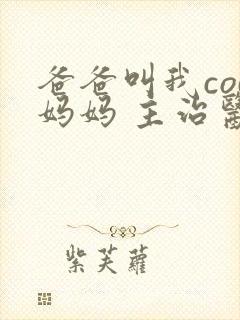 爸爸叫我co
妈妈 主治醫
紫芙蘿